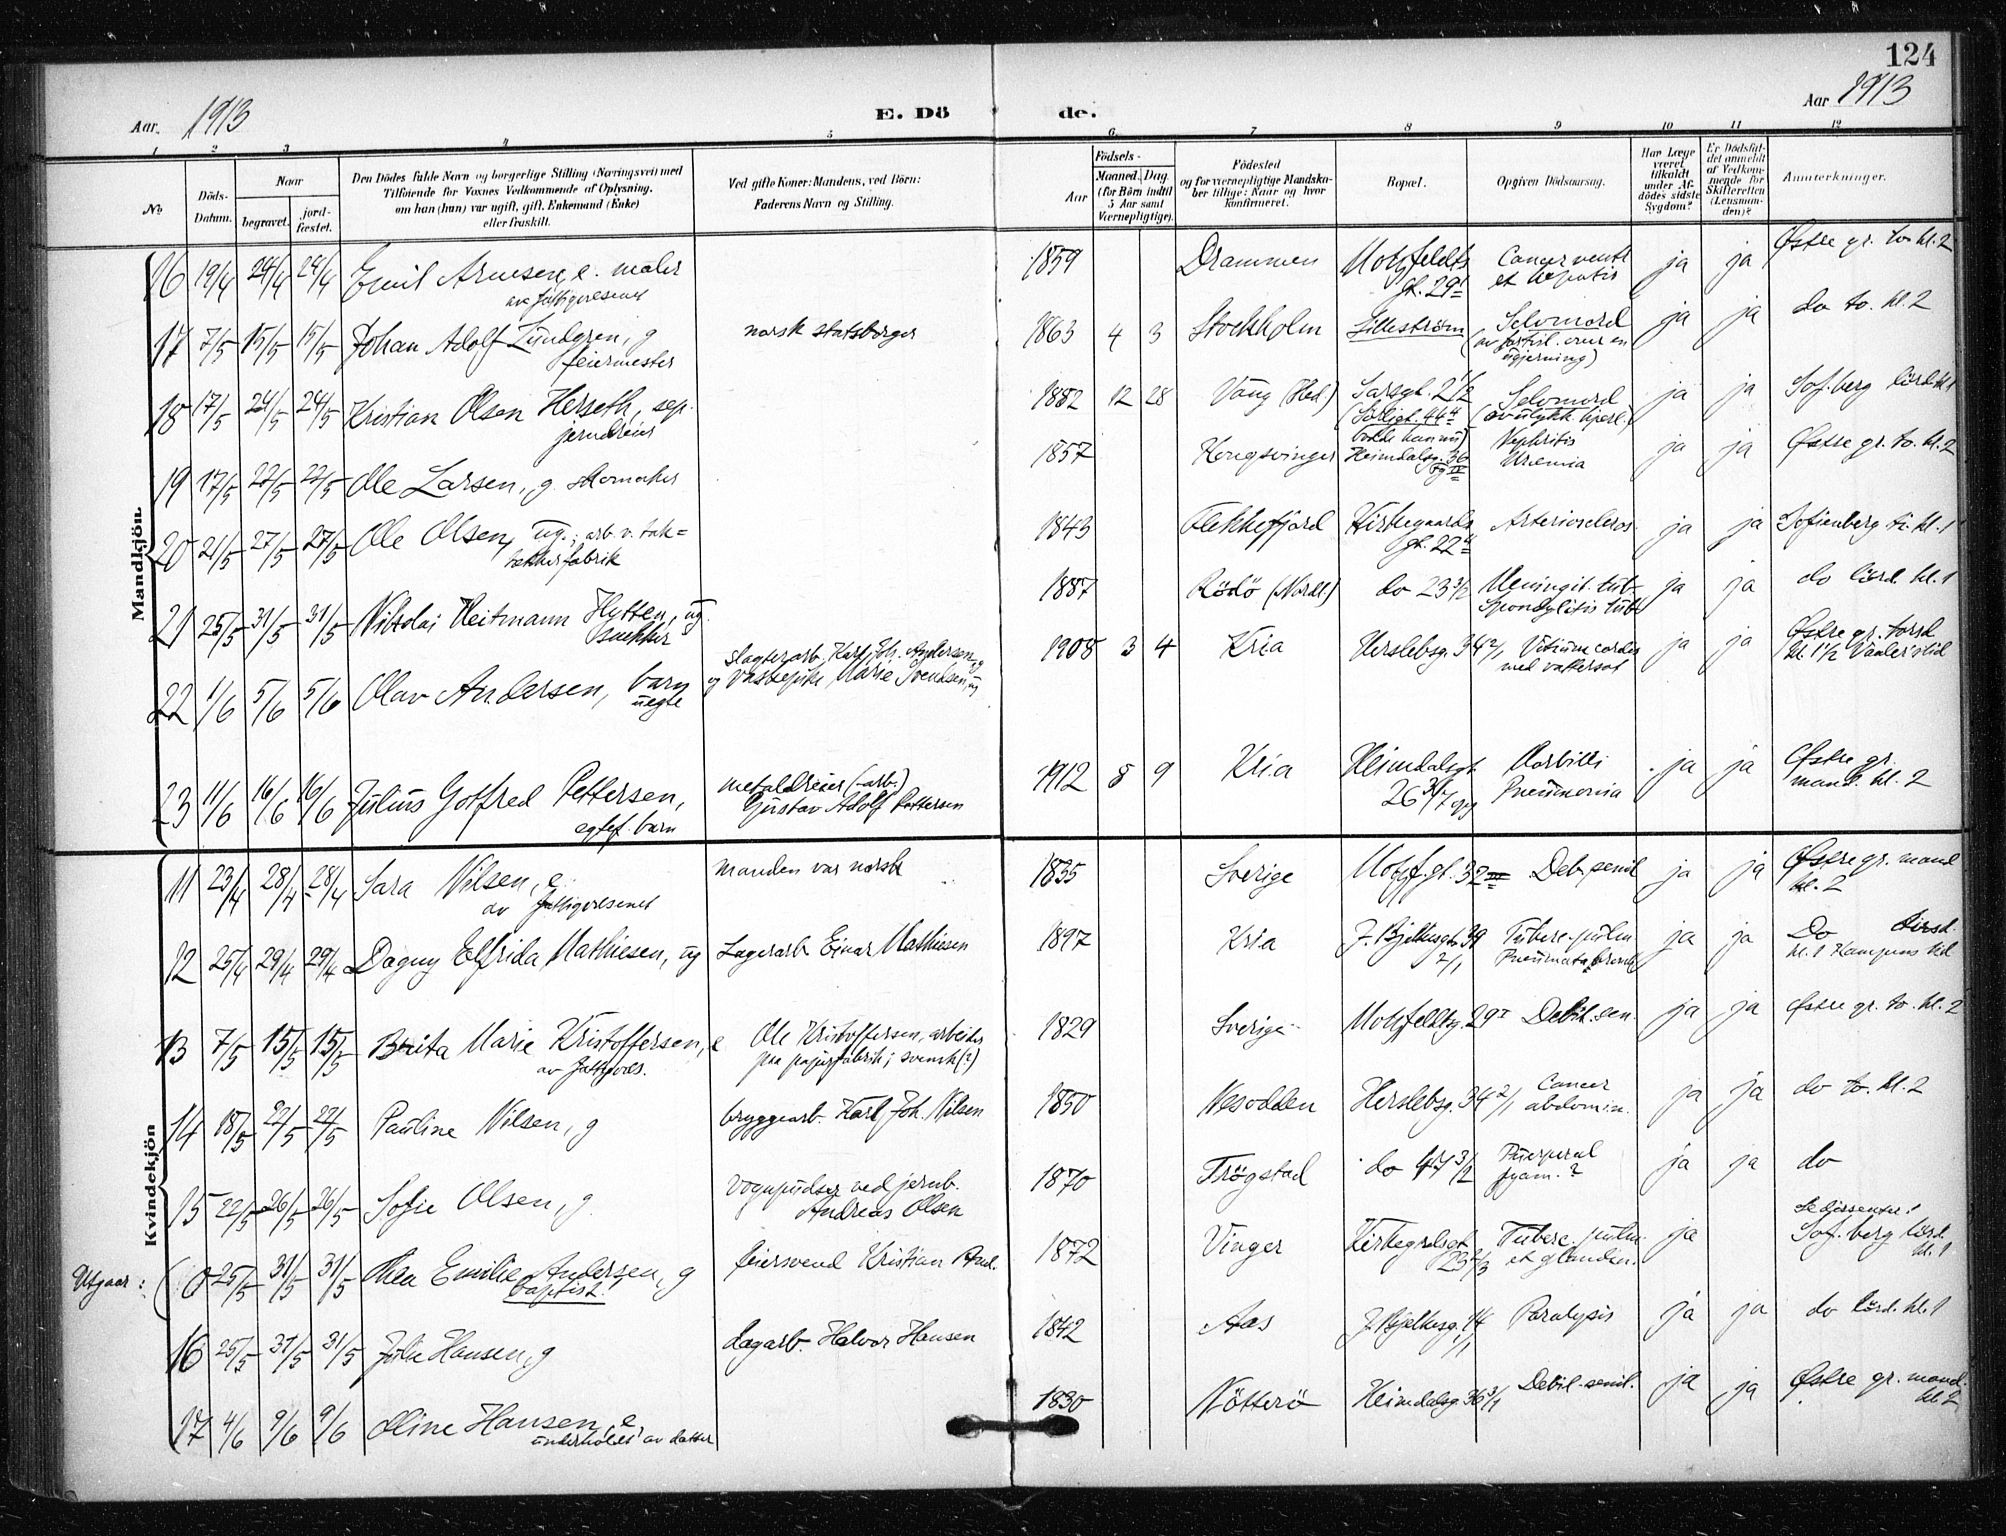 124
Aar. 1913
E. Dö
de.
Aar 1913
1 2 3 4 5 6 7 8 9 10 11 12
No
Döds-
Datum.
Naar
begravet.
jord-
fæstet.
Den Dödes fulde Navn og borgerlige Stilling (Næringsvei) med
Tilföiende for Voxnes Vedkommende af Oplysning,
om han (hun) var ugift, gift, Enkemand (Enke)
eller fraskilt.
Ved gifte Koner: Mandens, ved Börn:
Faderens Navn og Stilling.
Födsels-
Aar
Maaned. Dag
(for Börn indtil
5 Aar samt
Værnepligtige).
Födested
og for værnepligtige Mandska-
ber tillige: Naar og hvor
konfirmeret.
Bopæl.
Opgiven Dödsaarsag.
Har Læge
været
tilkaldt
under Af-
dödes sidste
Sygdom?
Er Dödsfal-
det anmeldt
af Vedkom-
mende for
Skifteretten
(Lensman-
den)?
Anmærkninger.
Mandkjön.
16 19/4 24/4 24/4 Emil Arnesen, e. maler 1859 Drammen Motzfeldts gt. 29 Cancer ventr. et hepatis ja ja Østre gr. to. kl. 2
17 7/5 15/5 15/5 Johan Adolf Lundgren, g feiermester norsk statsborger 1863 4 3 Stockholm Lilleström Selvmord ja ja do to. kl. 2
18 17/5 24/5 24/5 Kristian Olsen Herseth, sep. jerndreier 1882 12 28 Vang (Hed.) Sarsgt. 2 1/2 Selvmord ja ja Sof.berg lörd kl 1
19 17/5 22/5 22/5 Ole Larsen, g. skomaker 1857 Kongsvinger Heimdalsg. 36 Nephritis Uremia ja ja Østre gr. to. kl. 2
20 21/5 27/5 27/5 Ole Olsen, ug.; arb. v. tak=
fabrik 1843 Flekkefjord Kirkegaards gt. 22 Arterioscleros. ja ja Sofienberg ti. kl. 1
21 25/5 31/5 31/5 Nikolai Heitmann Hytten, ug. snekker 1887 Rödö (Nordl.) do 23 3/2 Meningit. tub. Spondylitis tub. ja ja do lörd. kl. 1
22 1/6 5/6 5/6 Olav Andersen, barn uegte slagterarb. Karl Joh. Andersen, g
og Marie Svendsen, ug 1908 3 4 Kria Herslebsg. 34 2/1 Vitium cordis med vattersot ja ja Østre gr. torsd kl. 1 1/2
23 11/6 16/6 16/6 Julius Gotfred Pettersen, egtef. barn metaldreier (-arb.)
Gustav Adolf Pettersen 1912 8 9 Kria Heimdalsgt 26 Morbilli Pneumonia ja ja Østre gr. mand. kl. 2
Kvindekjön
11 23/4 28/4 28/4 Sara Nilsen, e. av fattigvesenet manden var norsk 1835 Sverige Motzf.gt. 32 Deb. senil ja ja Østre gr. mand kl. 2
12 25/4 29/4 29/4 Dagny Elfrida Mathiesen, ug Lagerarb. Einar Mathiesen 1897 Kria J. Bjelkesgt 39 2/1 Tuberc. pulm ja ja Do tirsd. kl. 1
13 7/5 15/5 15/5 Brita Marie Kristoffersen, e av fattigves. Ole Kristoffersen, arbeider
paa papirfabrik; svensk (?) 1829 Sverige Motzfeldtsg. 29 I Debil. sen. ja ja Østre gr. to. kl. 2
14 18/5 22/5 22/5 Pauline Nilsen, g bryggearb. Karl Joh. Nilsen 1850 Nesodden Herslebsg. 34 2/1 Cancer abdomin. ja ja do to. kl. 2
15 22/5 26/5 26/5 Sofie Olsen, g. vognpudser ved jernb.
Andreas Olsen 1870 Trögstad do 47 3/2 Puerperal pyæm. ? ja ja do
Utgaar: (0 25/5 31/5 31/5 Thea Emilie Andersen, g baptist! feiersvend Kristian And. 1872 Vinger Kirkegrdsgt Tuberc. pulm. et glandul. ja Se dissenter!
Sof. berg lörd. kl. 1
16 25/5 31/5 31/5 Julie Hansen, g dagarb. Halvor Hansen 1842 Aas J. Bjelkesg. 14 1/1 Paralysis ja ja do lörd. kl. 1
17 4/6 9/6 9/6 Oline Hansen, e. underholdt av datter 1830 Nötterö Heimdalsg. 36 3/1 Debil. senil. ja ja Østre gr. mand. kl. 2